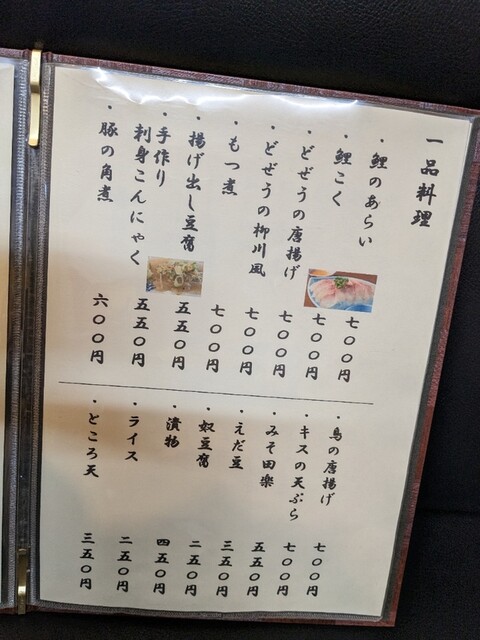 一品料理
・鯉のあらい 七〇〇円
・鯉こく 七〇〇円
・どぜうの唐揚げ 七〇〇円
・どぜうの柳川風 七〇〇円
・もつ煮 七〇〇円
・揚げ出し豆腐 五五〇円
・手作り
刺身こんにゃく 五五〇円
・豚の角煮 六〇〇円
・鳥の唐揚げ 七〇〇円
・キスの天ぷら 七〇〇円
・みそ田楽 五五〇円
・えだ豆 三五〇円
・奴豆腐 二五〇円
・漬物 四五〇円
・ライス 二五〇円
・ところ天 三五〇円